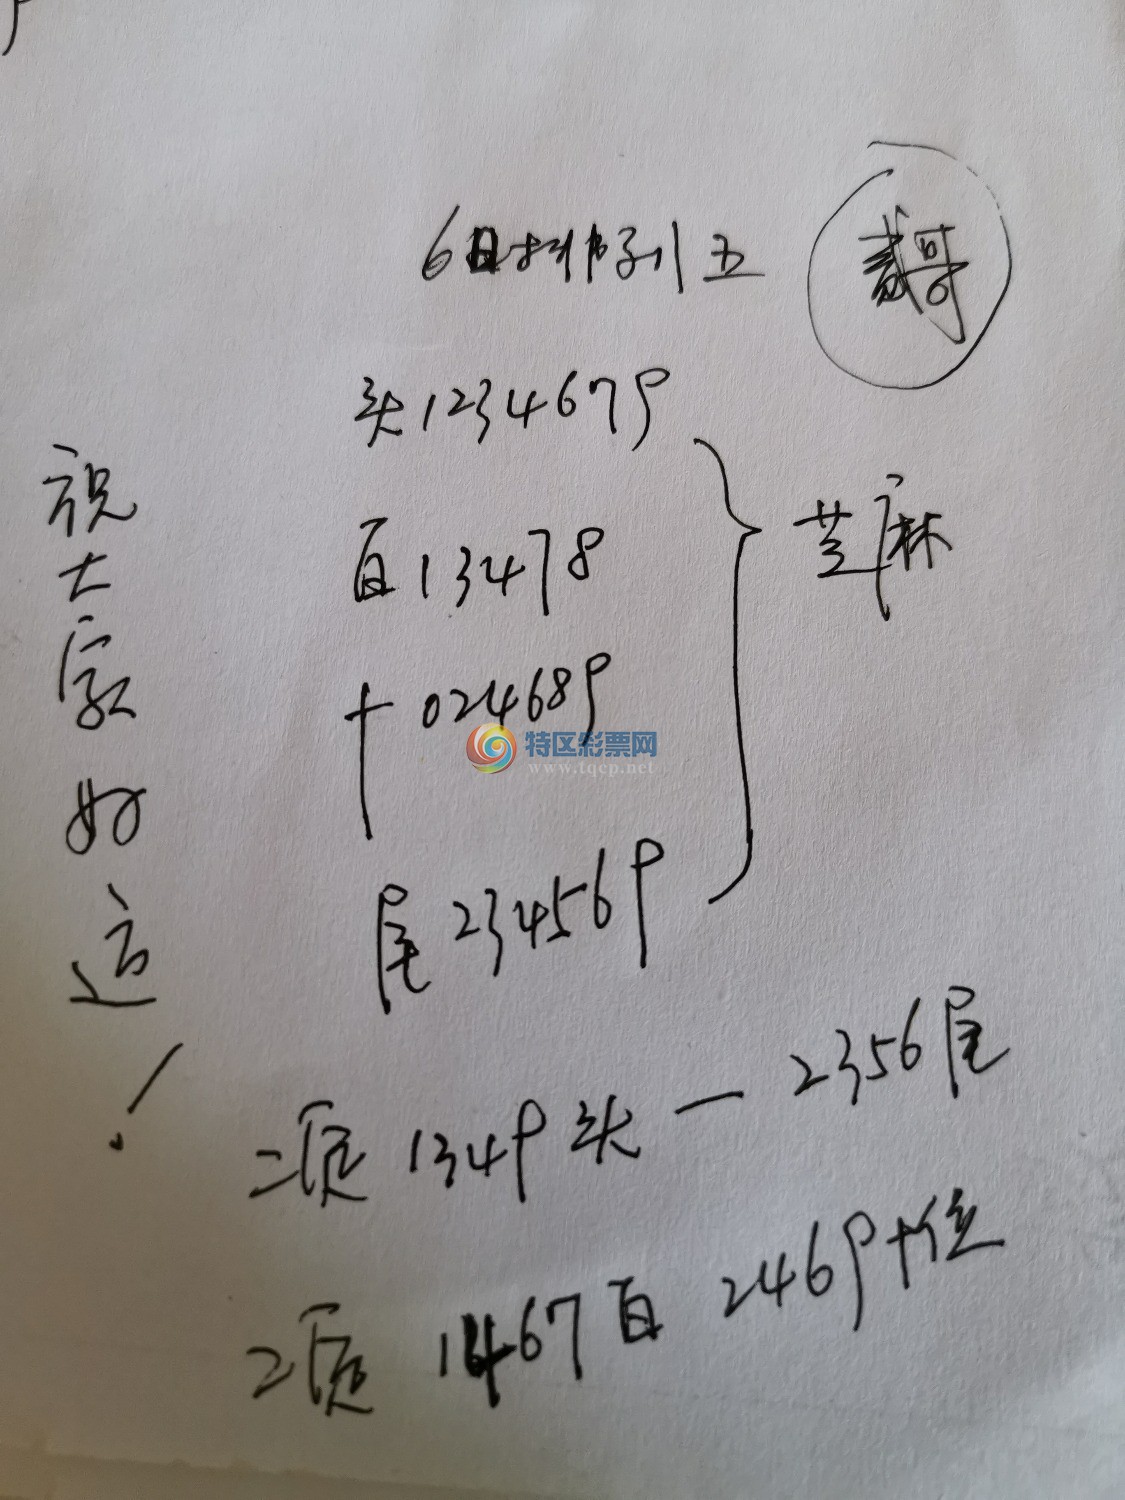 6日排列五
哥
头1234679
百13478
十024689
尾234569
芝麻
祝大家好运！
特区彩票网
www.tqcp.net
二定1349头一2356尾
二定1467百2469十位